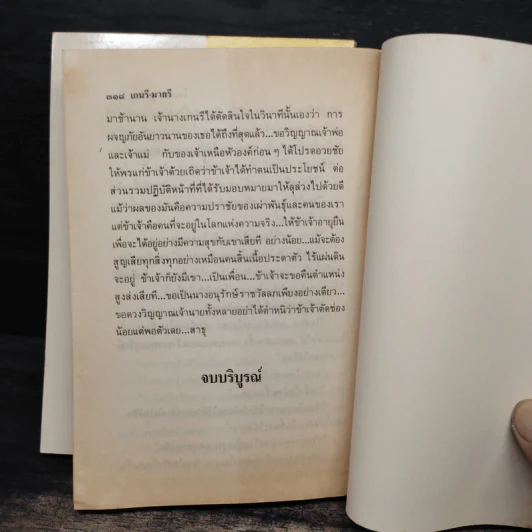 ๓๑๘ เกนรี-มายรี
มาช้านาน เจ้านางเกนรีได้ตัดสินใจในวินาทีนั้นเองว่า การ
ผจญภัยอันยาวนานของเธอได้ถึงที่สุดแล้ว...ขอวิญญาณเจ้าพ่อ
และเจ้าแม่ กับของเจ้าเหนือหัวองค์ก่อน ๆ ได้โปรดอวยชัย
ให้พรแก่ข้าเจ้าด้วยเถิดว่าข้าเจ้าได้ทำตนเป็นประโยชน์ ต่อ
ส่วนรวมปฏิบัติหน้าที่ที่ได้รับมอบหมายมาให้ลุล่วงไปด้วยดี
แม้ว่าผลของมันคือความปราชัยของเผ่าพันธุ์และคนของเรา
แต่ข้าเจ้าคือคนที่จะอยู่ในโลกแห่งความจริง...ให้ข้าเจ้าอายุยืน
เพื่อจะได้อยู่อย่างมีความสุขกับเขาเสียที อย่างน้อย...แม้จะต้อง
สูญเสียทุกสิ่งทุกอย่างเหมือนคนสิ้นเนื้อประดาตัว ไร้แผ่นดิน
จะอยู่ ข้าเจ้าก็ยังมีเขา...เป็นเพื่อน...ข้าเจ้าจะขอคืนตำแหน่ง
สูงส่งเสียที...ขอเป็นนางอนุรักษ์ราชวัลลภเพียงอย่างเดียว...
ขอดวงวิญญาณเจ้านายทั้งหลายอย่าได้ตำหนิว่าข้าเจ้าตัดช่อง
น้อยแต่พอตัวเลย...สาธุ
จบบริบูรณ์